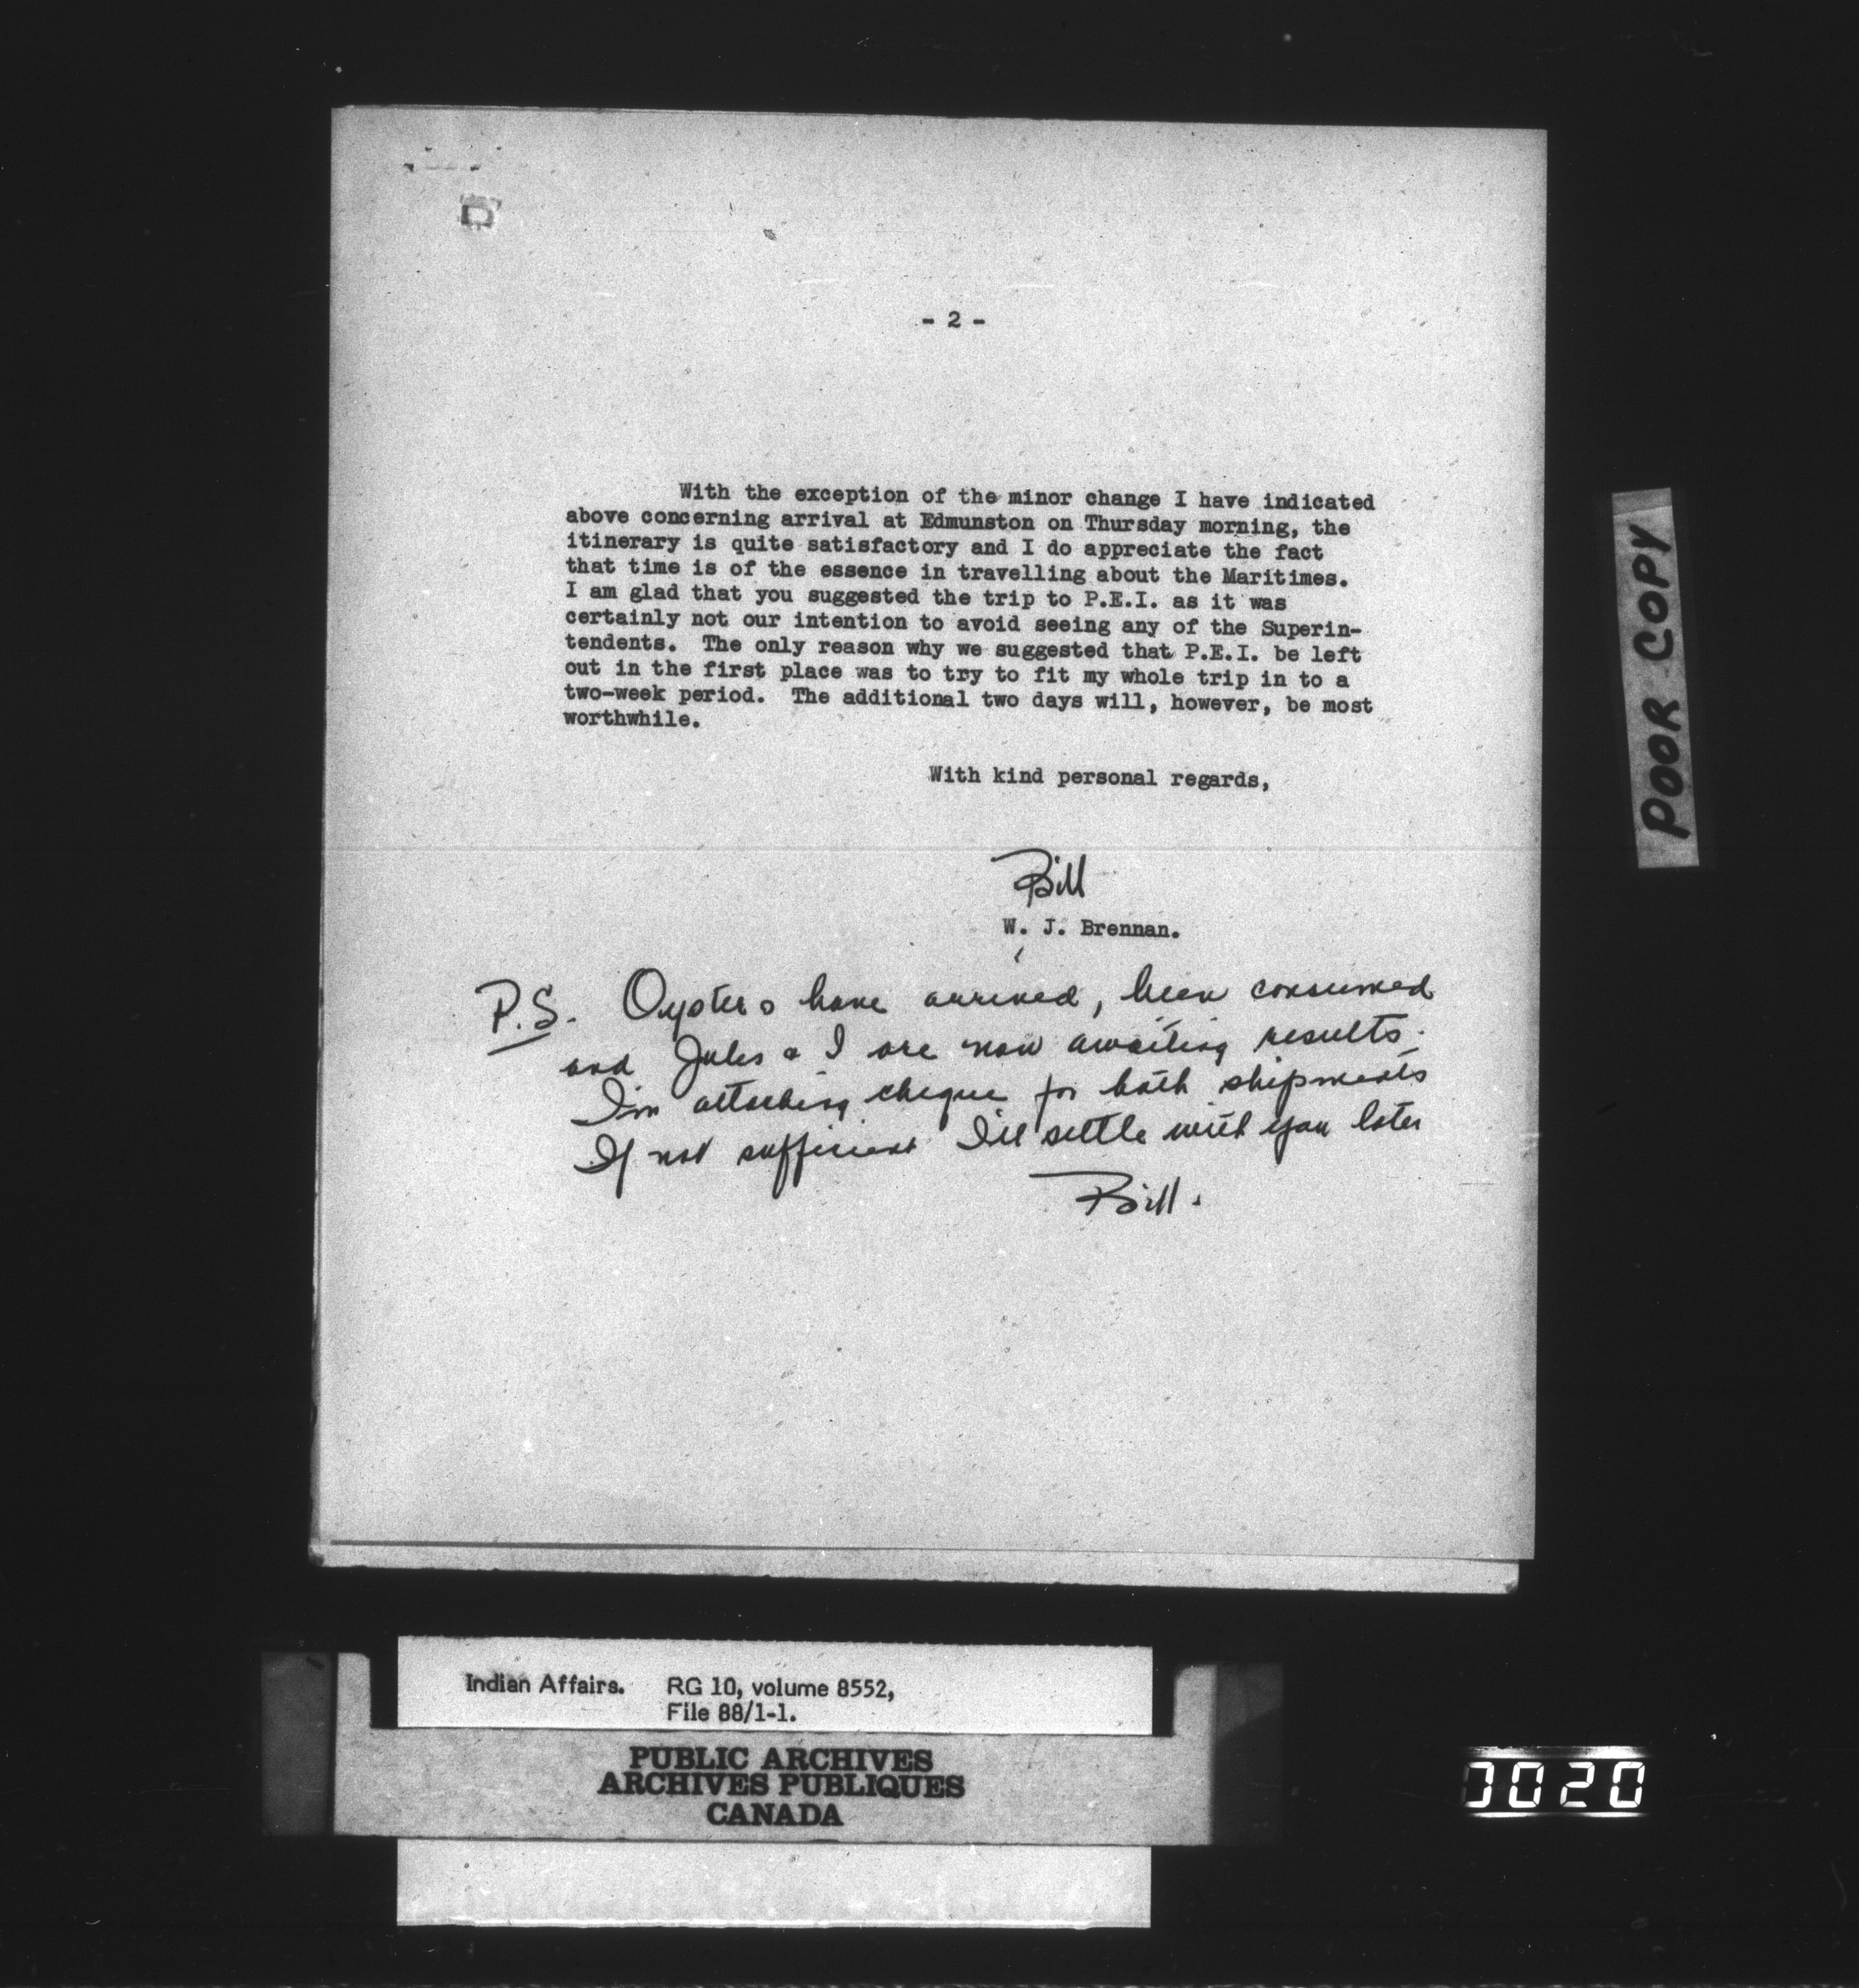 - 2 -
With the exception of the minor change I have indicated
above concerning arrival at Edmunston on Thursday morning, the
itinerary is quite satisfactory and I do appreciate the fact
that time is of the essence in travelling about the Maritimes.
I am glad that you suggested the trip to P.E.I. as it was
certainly not our intention to avoid seeing any of the Superin-
tendents. The only reason why we suggested that P.E.I. be left
out in the first place was to try to fit my whole trip in to a
two-week period. The additional two days will, however, be most
worthwhile.
With kind personal regards,
Bill
W. J. Brennan.
P.S. Oysters have arrived, been consumed
and Jules & I are now awaiting results.
I'm attaching cheque for both shipments
If not sufficient I'll settle with you later
Bill.
POOR COPY
Indian Affairs. RG 10, volume 8552,
File 88/1-1.
PUBLIC ARCHIVES
ARCHIVES PUBLIQUES
CANADA
0020